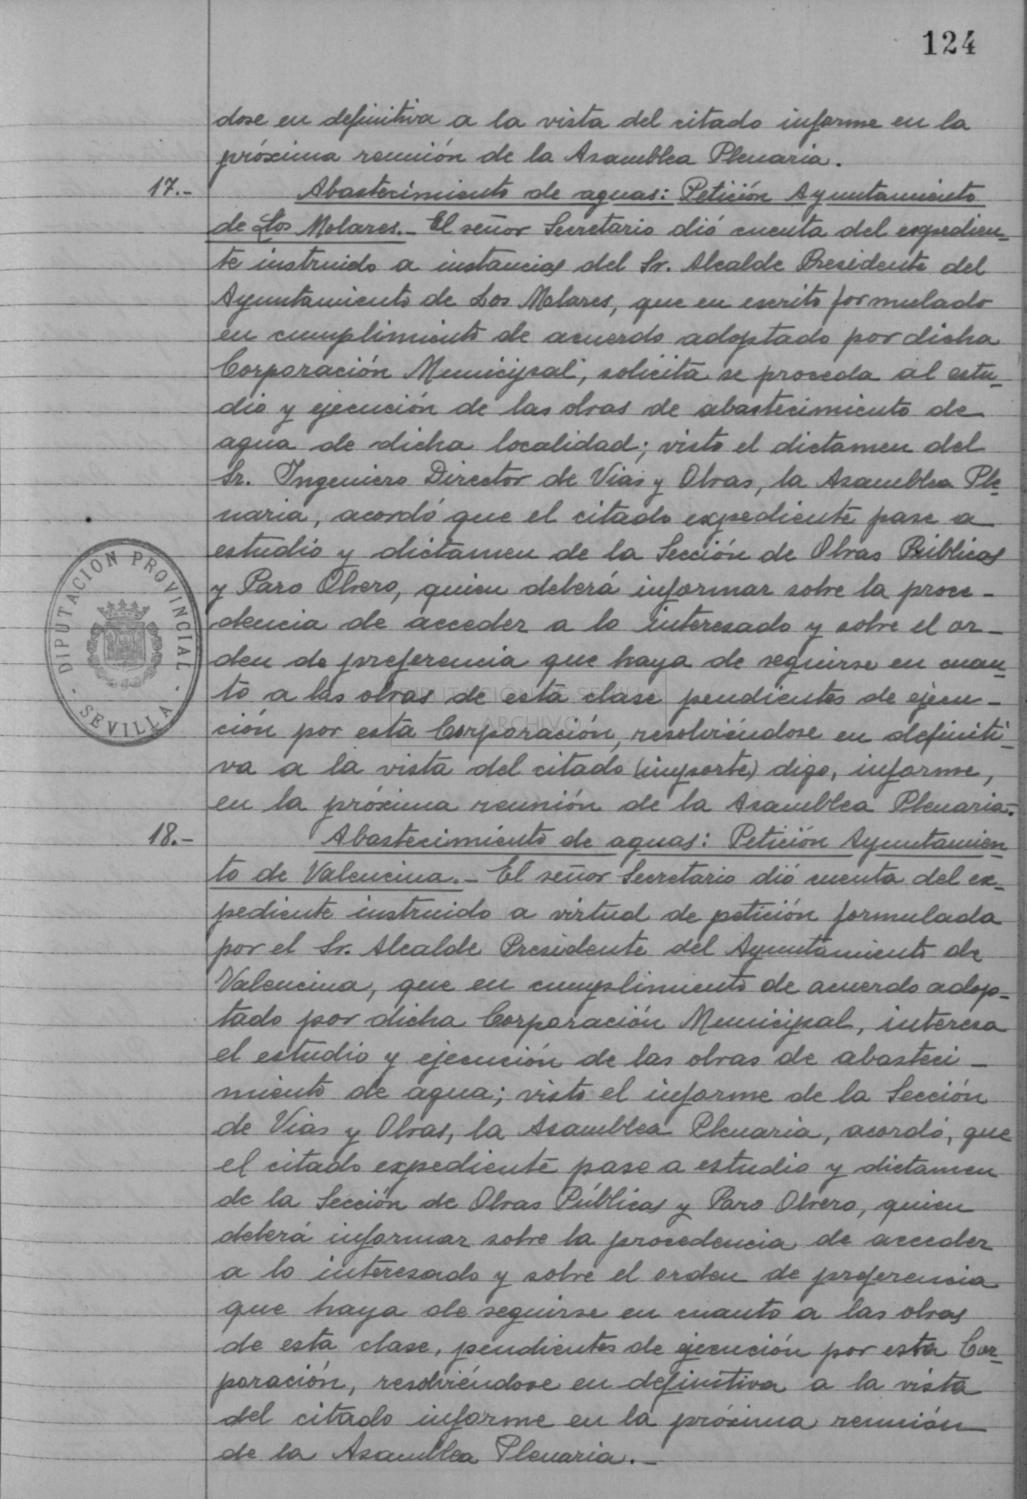 124
dose en definitiva a la vista del citado informe en la
próxima reunión de la Asamblea Plenaria.
17.- Abastecimiento de aguas: Petición Ayuntamiento
de Los Molares.- El señor Secretario dió cuenta del expedien-
te instruido a instancias del Sr. Alcalde Presidente del
Ayuntamiento de Los Molares, que en escrito formulado
en cumplimiento de acuerdo adoptado por dicha
Corporación Municipal, solicita se proceda al estu-
dio y ejecución de las obras de abastecimiento de
agua de dicha localidad; visto el dictamen del
Sr. Ingeniero Director de Vias y Obras, la Asamblea Ple-
naria, acordó que el citado expediente pase a
estudio y dictamen de la Sección de Obras Públicas
y Paro Obrero, quien deberá informar sobre la proce-
dencia de acceder a lo interesado y sobre el or-
den de preferencia que haya de seguirse en cuan-
to a las obras de esta clase pendientes de ejecu-
ción por esta Corporación, resolviéndose en definiti-
va a la vista del citado (importe) digo, informe,
en la próxima reunión de la Asamblea Plenaria.-
18.- Abastecimiento de aguas: Petición Ayuntamien-
to de Valencina.- El señor Secretario dió cuenta del ex-
pediente instruido a virtud de petición formulada
por el Sr. Alcalde Presidente del Ayuntamiento de
Valencina, que en cumplimiento de acuerdo adop-
tado por dicha Corporación Municipal, interesa
el estudio y ejecución de las obras de abasteci-
miento de agua; visto el informe de la Sección
de Vias y Obras, la Asamblea Plenaria, acordó, que
el citado expediente pase a estudio y dictamen
de la Sección de Obras Públicas y Paro Obrero, quien
deberá informar sobre la procedencia de acceder
a lo interesado y sobre el orden de preferencia
que haya de seguirse en cuanto a las obras
de esta clase, pendientes de ejecución por esta Cor-
poración, resolviéndose en definitiva a la vista
del citado informe en la próxima reunión
de la Asamblea Plenaria.-
DIPUTACION PROVINCIAL
- SEVILLA -
ARCHIVO